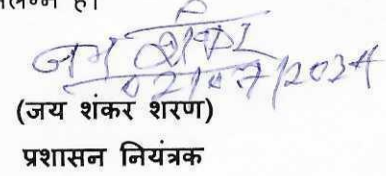 संलग्न है।
जय शंकर
02/07/2034
(जय शंकर शरण)
प्रशासन नियंत्रक